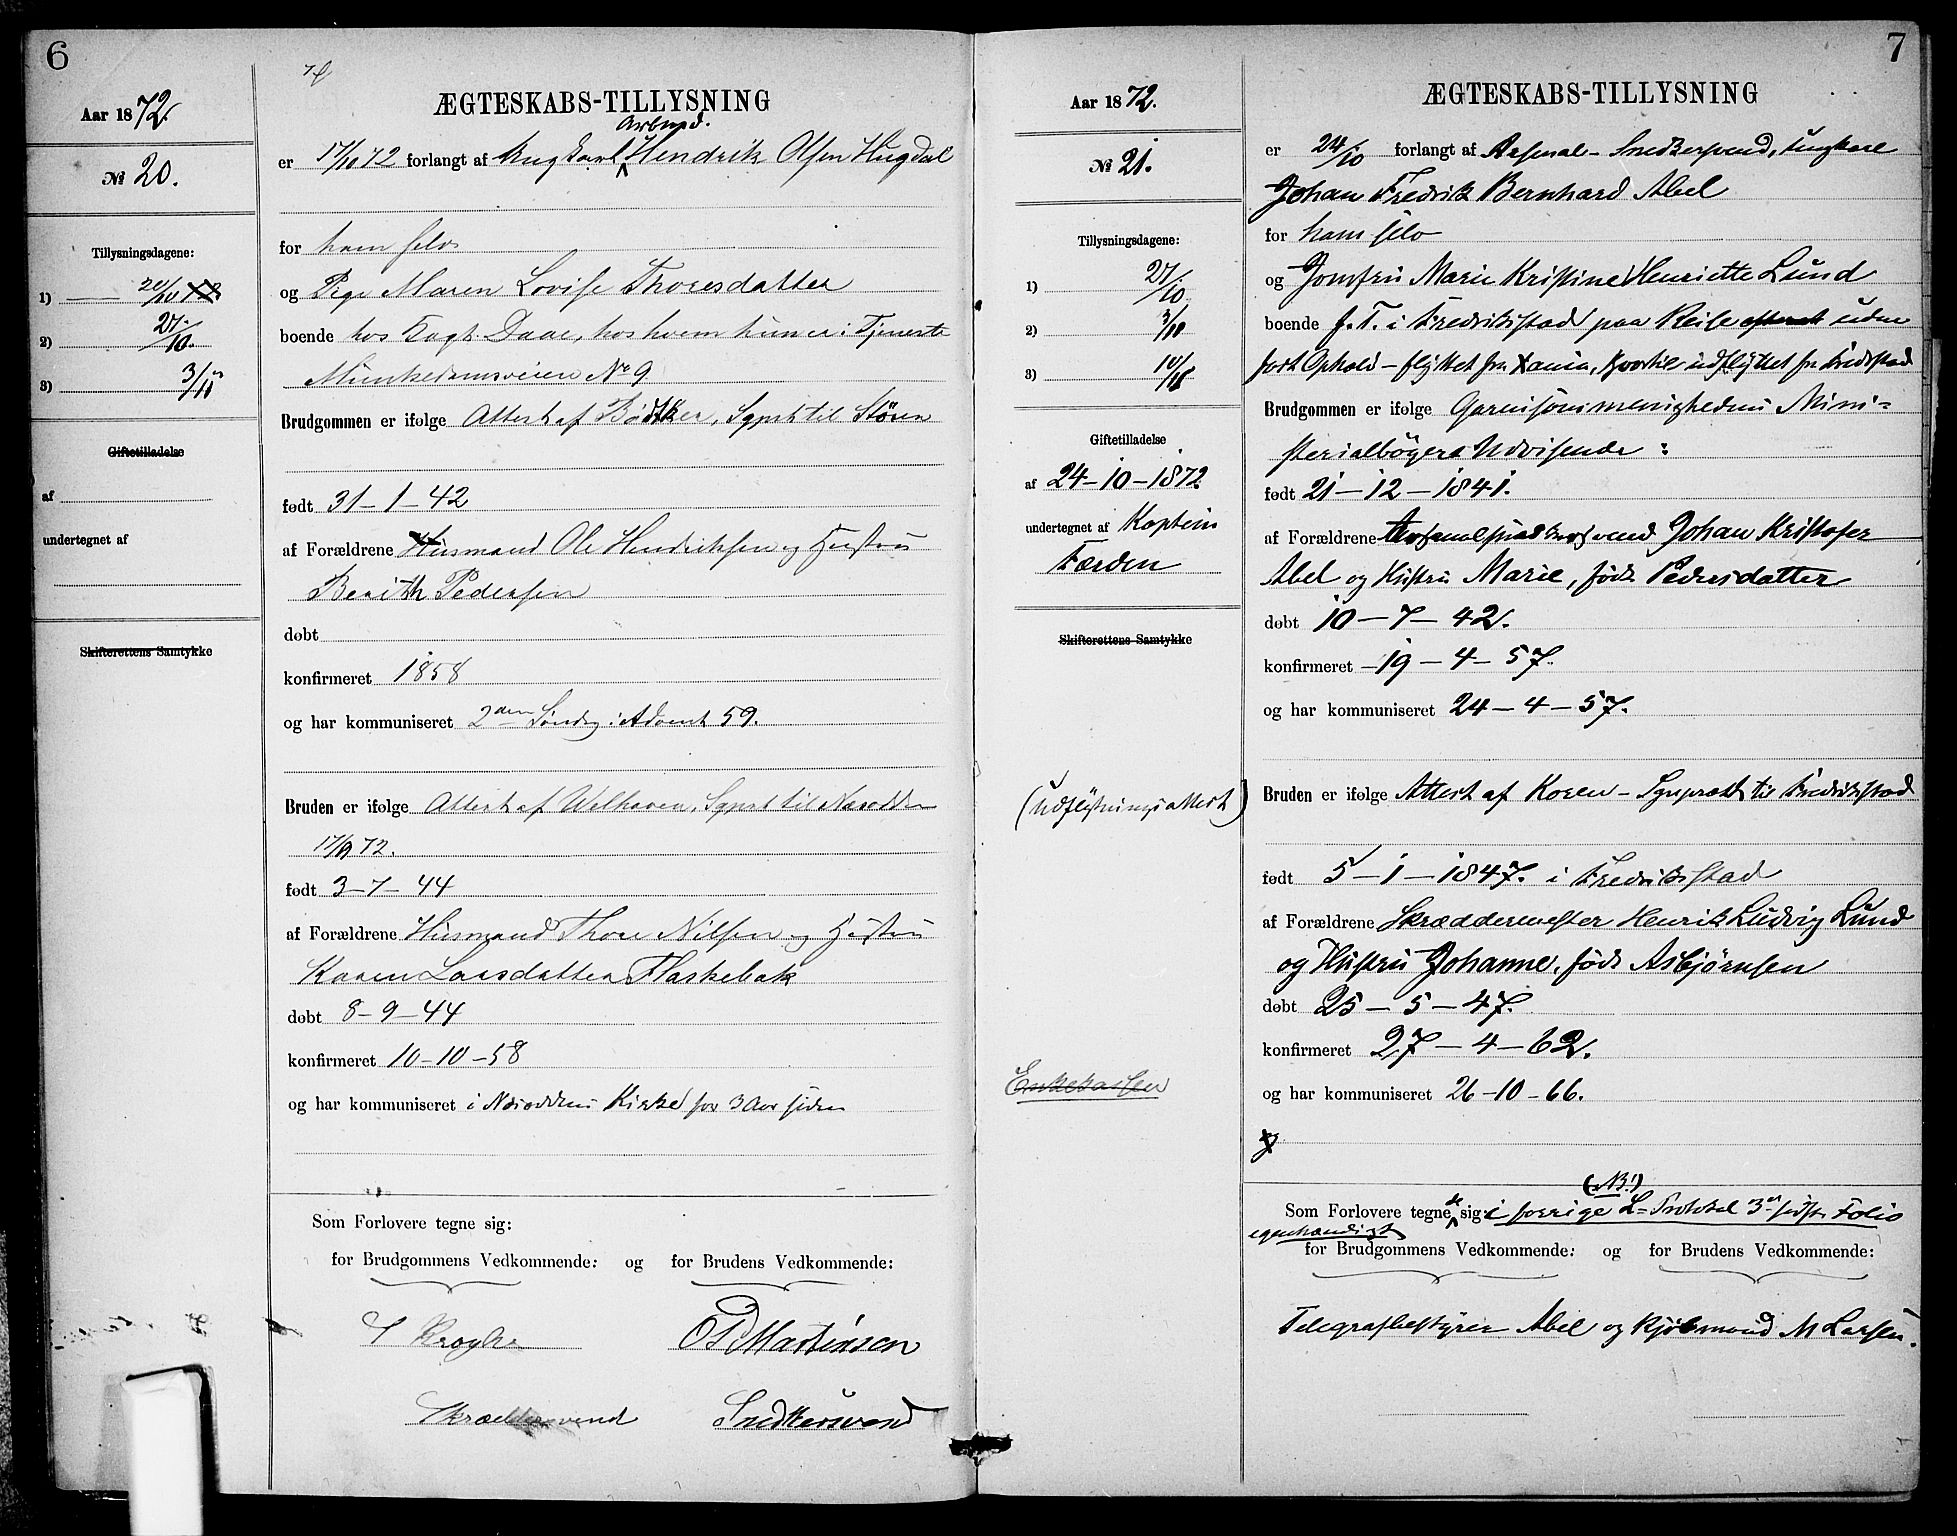 6
Aar 1872.
№ 20.
Tillysningsdagene:
1) 20/10
2) 27/10.
3) 3/11
Giftetilladelse
af
undertegnet af
Skifterettens Samtykke
ÆGTESKABS-TILLYSNING
Arbmd.
er 17/10 72 forlangt af Ungkarl Hendrik Olsen Hugdal
for ham selv
og Pige Maren Lovise Thoresdatter
boende hos Kapt. Daae, hos hvem hun er i Tjeneste
Munkedamsveien No 9
Brudgommen er ifølge Attest af Bødtker, Sgprst til Stören
født 31-1-42
af Forældrene Husmand Ole Hendriksen og Hustru
Berith Pedersen
døbt
konfirmeret 1858
og har kommuniseret 2den Søndag i Advent 59.
Bruden er ifølge Attest af Welhaven, Sgprst til Næsodden
17/9 72.
født 3-7-44
af Forældrene Husmand Thore Nilsen og Hustru
Karen Larsdatter Flaskebæk
døbt 8-9-44
konfirmeret 10-10-58
og har kommuniseret i Næsoddens Kirke for 3 Aar siden
Som Forlovere tegne sig:
for Brudgommens Vedkommende: og for Brudens Vedkommende:
Krogh
Martinsen
Skræddersvend
Snedkersvend
7
Aar 1872.
№ 21.
Tillysningsdagene:
1) 27/10
2) 3/11
3) 10/11
Giftetilladelse
af 24-10-1872
undertegnet af Koptein
Færden
Skifterettens Samtykke
(Udflytningsattest)
Enkekassen
ÆGTESKABS-TILLYSNING
er 24/10 forlangt af Arsenal-Snedkersvend, Ungkarl
Johan Fredrik Bernhard Abel
for ham selv
og Jomfru Marie Kristine Henriette Lund
boende f. T. i Fredrikstad paa Reise uden
fast Ophold - flyttet fra Xania, hvortil udflyttet fra Fredrikstad
Brudgommen er ifølge Garnisonsmenighedens Mini-
sterialbøgers Udvisende:
født 21-12-1841.
af Forældrene Arsenalsnedkersvend Johan Kristofer
Abel og Hustru Marie, født Pedersdatter
døbt 10-7-42.
konfirmeret 19-4-57.
og har kommuniseret 24-4-57.
Bruden er ifølge Attest af Koren - Sgnprest til Fredrikstad
født 5-1-1847. i Fredrikstad
af Forældrene Skræddermester Henrik Ludvig Lund
og Hustru Johanne, født Asbjørnsen
døbt 25-5-47.
konfirmeret 27-4-62.
og har kommuniseret 26-10-66.
(NB!)
Som Forlovere tegne de sig: i forrige L-Protokol 3die sidste Folio
egenhændigt
for Brudgommens Vedkommende: og for Brudens Vedkommende:
Telegrafbestyrer Abel og Kjøbmand M Larsen.